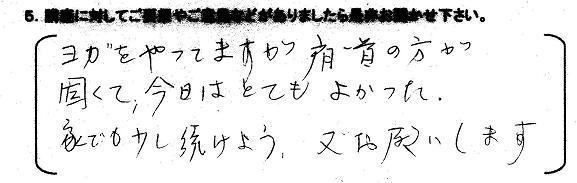 5. 講座に対してご要望やご意見などがありましたら是非お聞かせ下さい。
ヨガをやってますが肩首の方が
固くて、今日はとてもよかった。
家でも少し続けよう、又お願いします